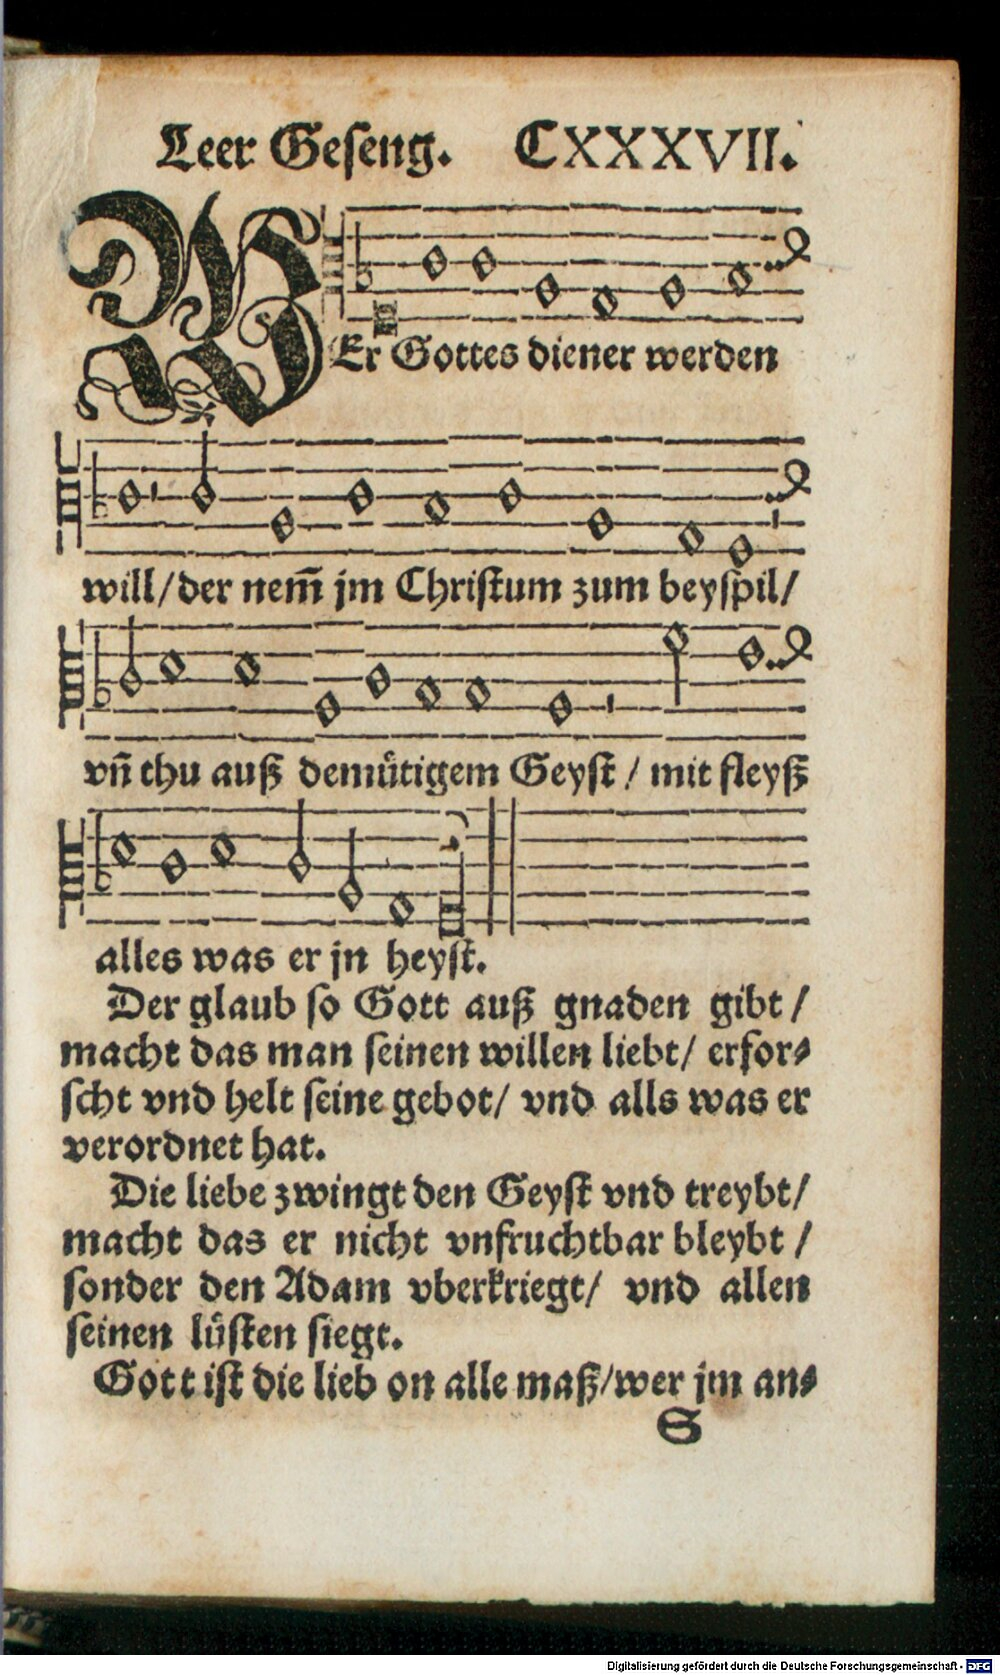 Leer Geseng. CXXXVII.
WEr Gottes diener werden
will/der nem̃ jm Christum zum beyspil/
vn̄ thu auß demuͤtigem Geyst / mit fleyß
alles was er jn heyst.
Der glaub so Gott auß gnaden gibt /
macht das man seinen willen liebt/ erfor⸗
scht vnd helt seine gebot/ vnd alls was er
verordnet hat.
Die liebe zwingt den Geyst vnd treybt/
macht das er nicht vnfruchtbar bleybt /
sonder den Adam vberkriegt/ vnd allen
seinen luͤsten siegt.
Gott ist die lieb on alle maß/wer jm an⸗
S
Digitalisierung gefördert durch die Deutsche Forschungsgemeinschaft - DFG